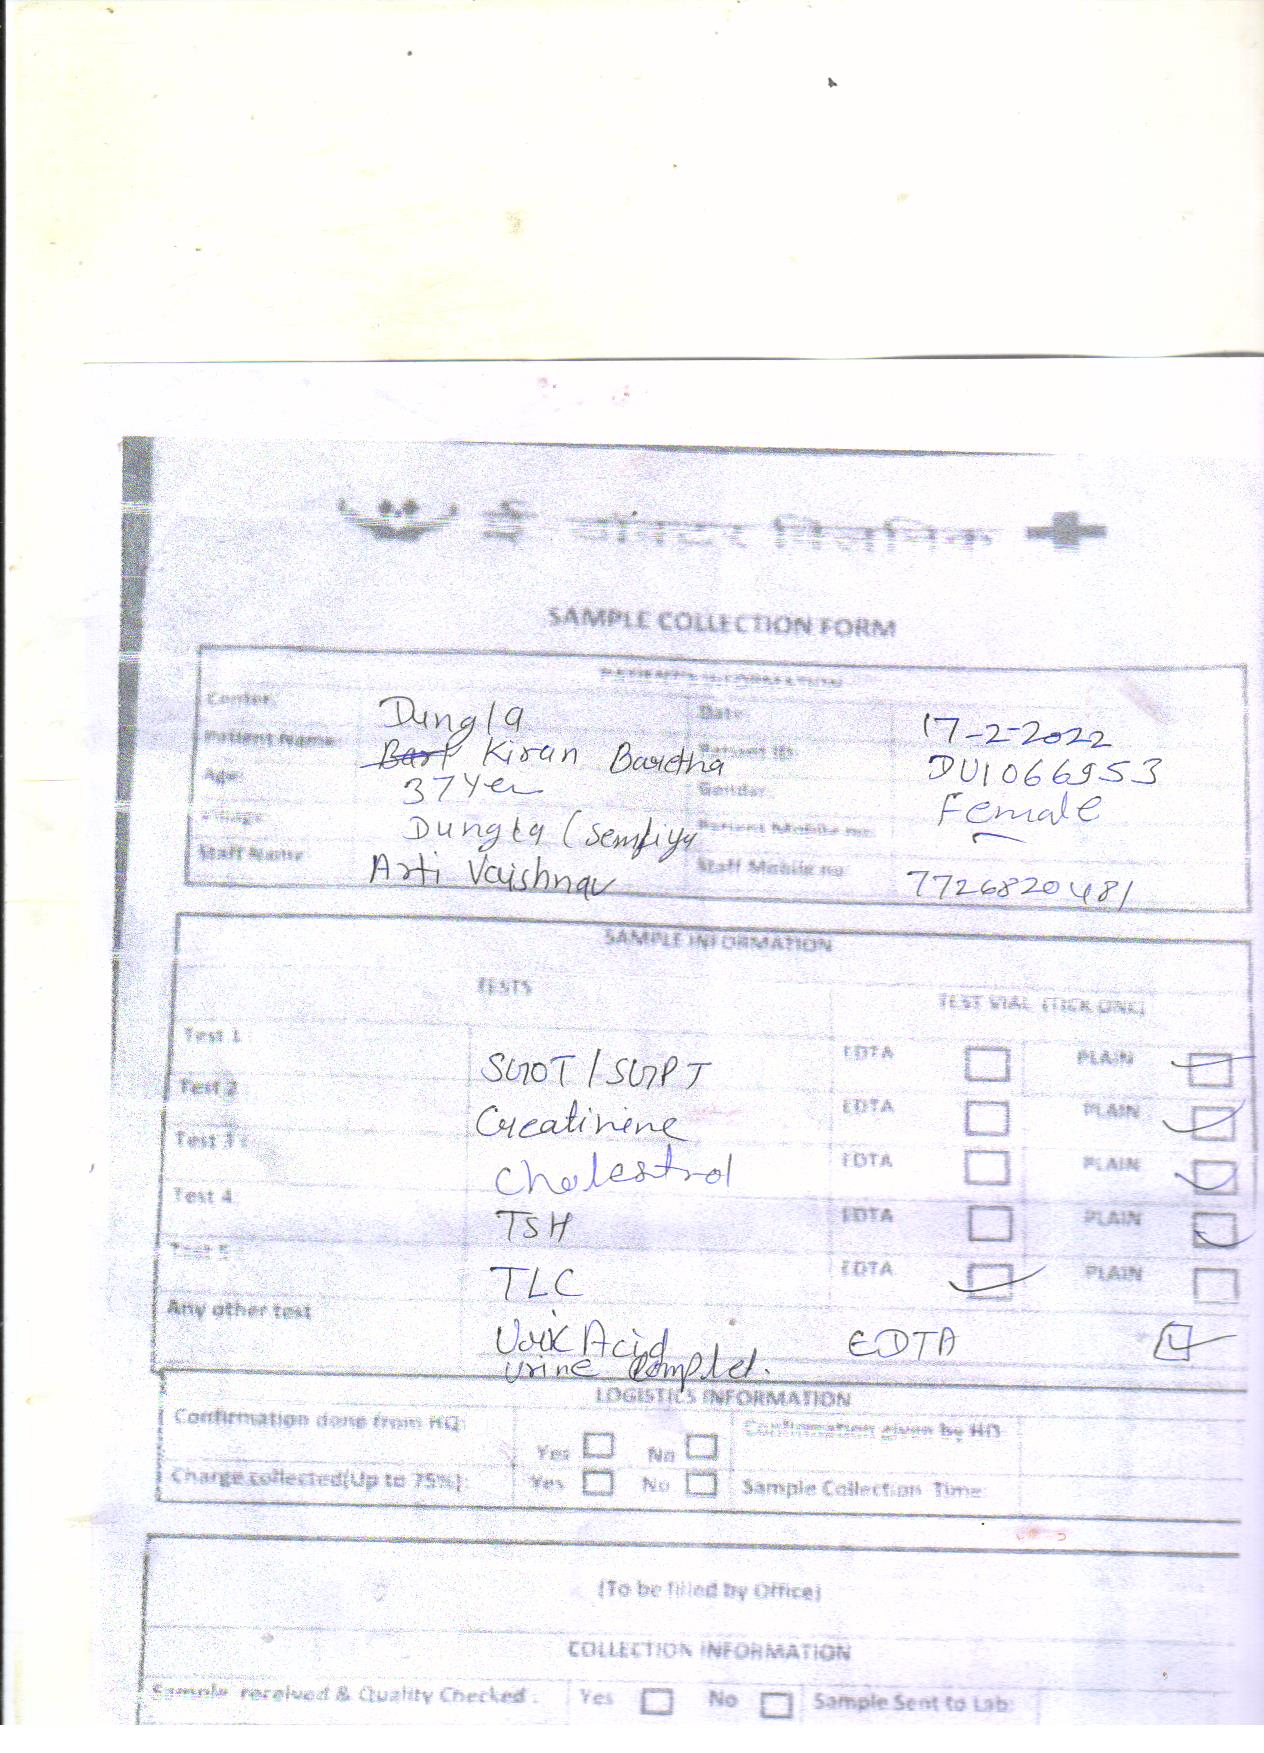 ई डॉक्टर क्लिनिक
SAMPLE COLLECTION FORM
PATIENT'S INFORMATION
Center: Dungla Date: 17-2-2022
Patient Name: Kiran Baretha Patient ID: DU1066953
Age: 37 Yer Gender: Female
Village: Dungla (Semliya Patient Mobile no:
Staff Name Arti Vaishnav Staff Mobile no 7726820481
SAMPLE INFORMATION
TESTS TEST VIAL (TICK ONE)
Test 1 SGOT / SGPT EDTA PLAIN
Test 2 Creatinine EDTA PLAIN
Test 3 : Cholestrol EDTA PLAIN
Test 4 TSH EDTA PLAIN
Test 5 TLC EDTA PLAIN
Any other test Urix Acid EDTA
Urine Complet.
LOGISTICS INFORMATION
Confirmation done from HQ: Yes No Confirmation given by HQ
Charge collected(Up to 75%): Yes No Sample Collection Time:
(To be filled by Office)
COLLECTION INFORMATION
Sample received & Quality Checked : Yes No Sample Sent to Lab: